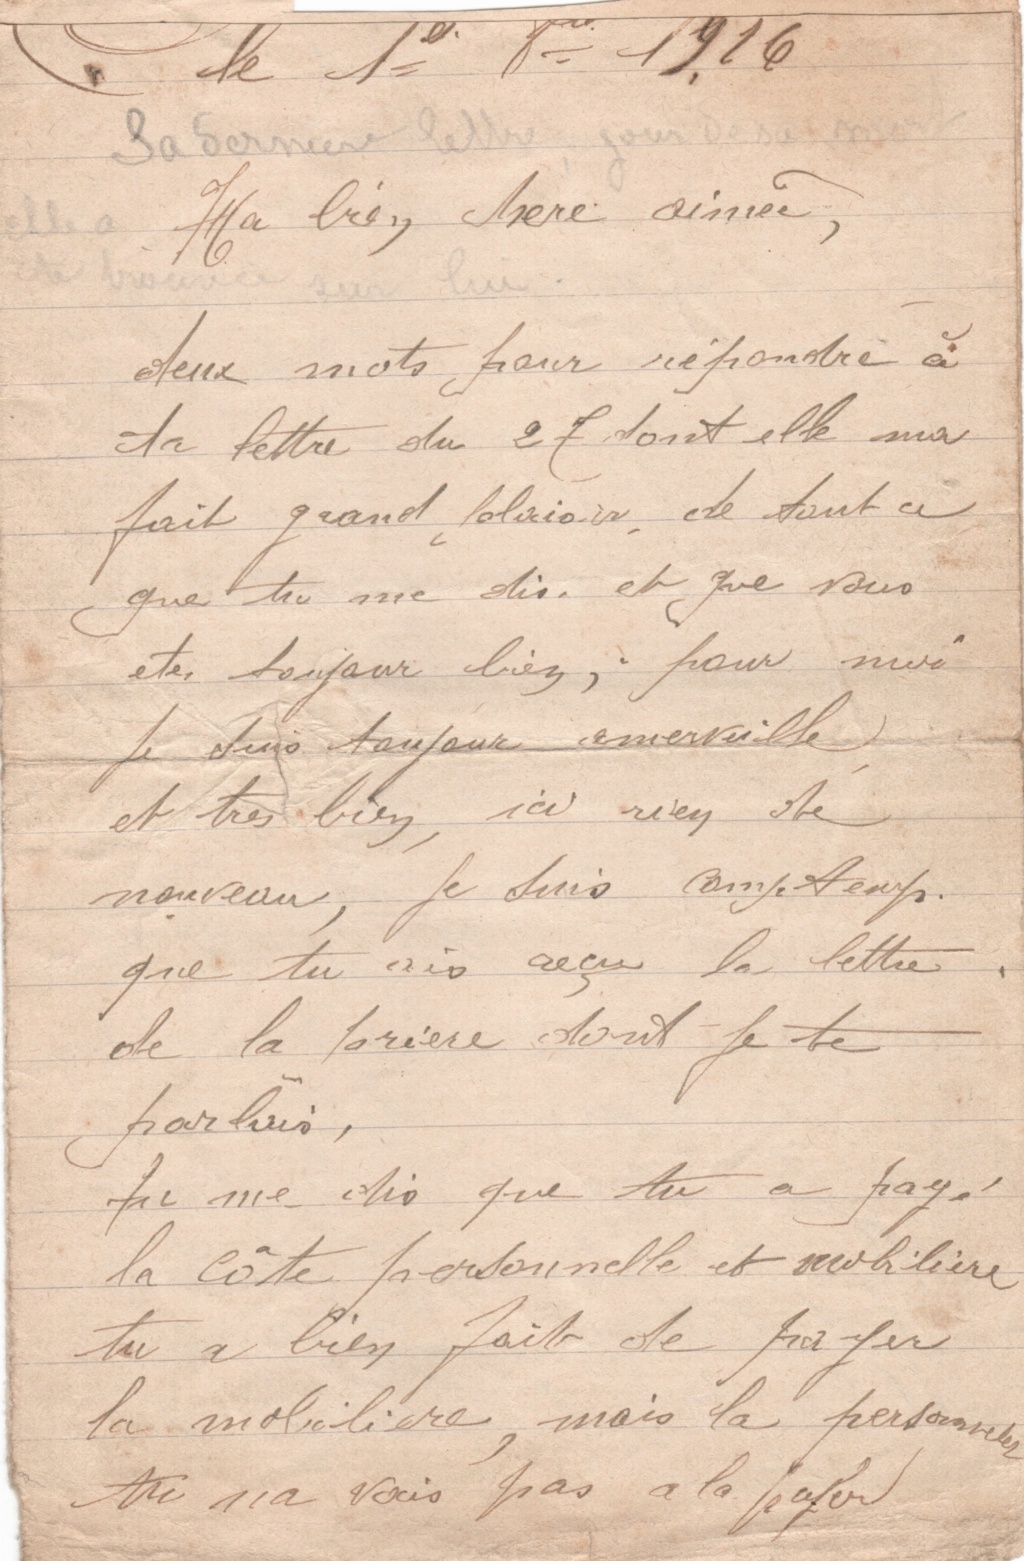 le 1er 8bre 1916
Sa derniere lettre, jour de sa mort
Ma bien chere aimée,
elle a
été trouvée sur lui.
deux mots pour répondre à
ta lettre du 27 dont elle ma
fait grand plaisir, de tout ce
que tu me dis. et que vous
etes toujour bien, pour moi
je suis toujour amerveille
et tres bien, ici rien de
nouveau, je suis comptemp.
que tu ais reçu la lettre
de la priere dont je te
parlais,
Tu me dis que tu a payé
la côte personnelle et mobiliere
tu a bien fait de payer
la mobiliere, mais la personnelle
tu na vais pas a la payer